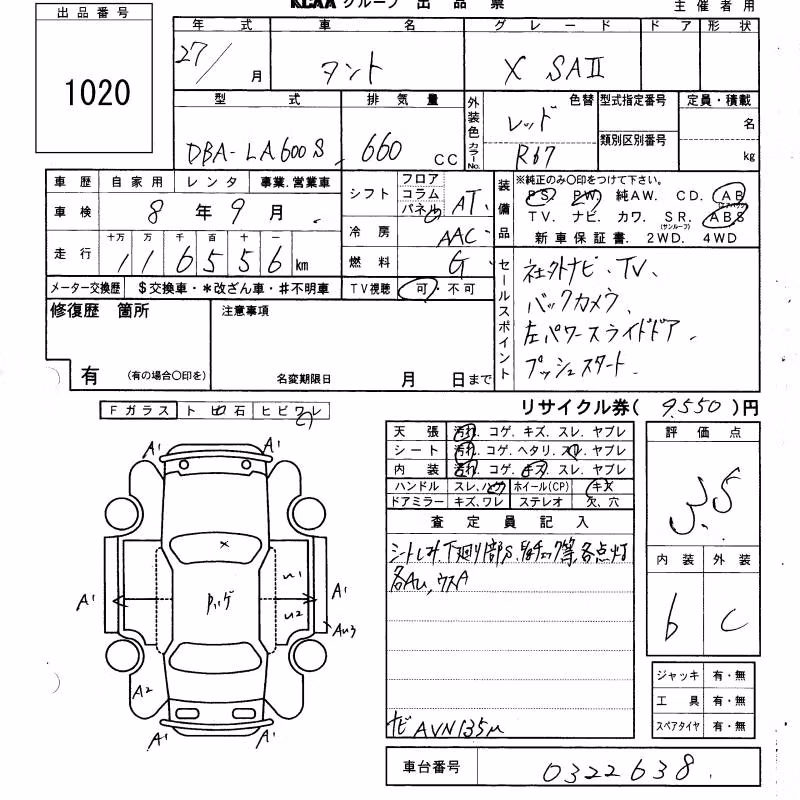 KCAA グループ 出品票
主催者用
出品番号
1020
年式 車名 グレード ドア 形状
27/月 タント X SAⅡ
型式 排気量 外装色 カラーNo. 色替 型式指定番号 定員・積載
DBA-LA600S 660 CC レッド R67 類別区別番号 名 kg
車歴 自家用 レンタ 事業.営業車
車検 8年9月
走行 十万 万 千 百 十 一
116556 km
メーター交換歴 $交換車・*改ざん車・#不明車
シフト フロア コラム パネル AT
冷房 AAC
燃料 G
TV視聴 可・不可
装備品 ※純正のみ○印をつけて下さい。
PS. PW. 純AW. CD. AB(エアバック)
TV. ナビ. カワ. SR.(サンルーフ) ABS
新車保証書. 2WD. 4WD
セールスポイント
社外ナビ、TV、
バックカメラ、
左パワースライドドア、
プッシュスタート
修復歴 箇所 注意事項
有 (有の場合○印を) 名変期限日 月 日まで
リサイクル券( 9,550 )円
Fガラス トビ石 ヒビワレ
天張 汚れ. コゲ. キズ. スレ. ヤブレ
シート 汚れ. コゲ. ヘタリ. スレ. ヤブレ
内装 汚れ. コゲ. キズ. スレ. ヤブレ
ハンドル スレ. ハゲ ホイール(CP) キズ
ドアミラー キズ. ワレ ステレオ 欠. 穴
評価点
3.5
内装 外装
6 C
査定員記入
シートしみ、下廻り部S、
各点灯
各AU,ウスA
ナビ AVN135M
A1 A1
X
U1
A1 ハゲ U2 A1
AU3
A2
A1 A1
ジャッキ 有・無
工具 有・無
スペアタイヤ 有・無
車台番号 0322638